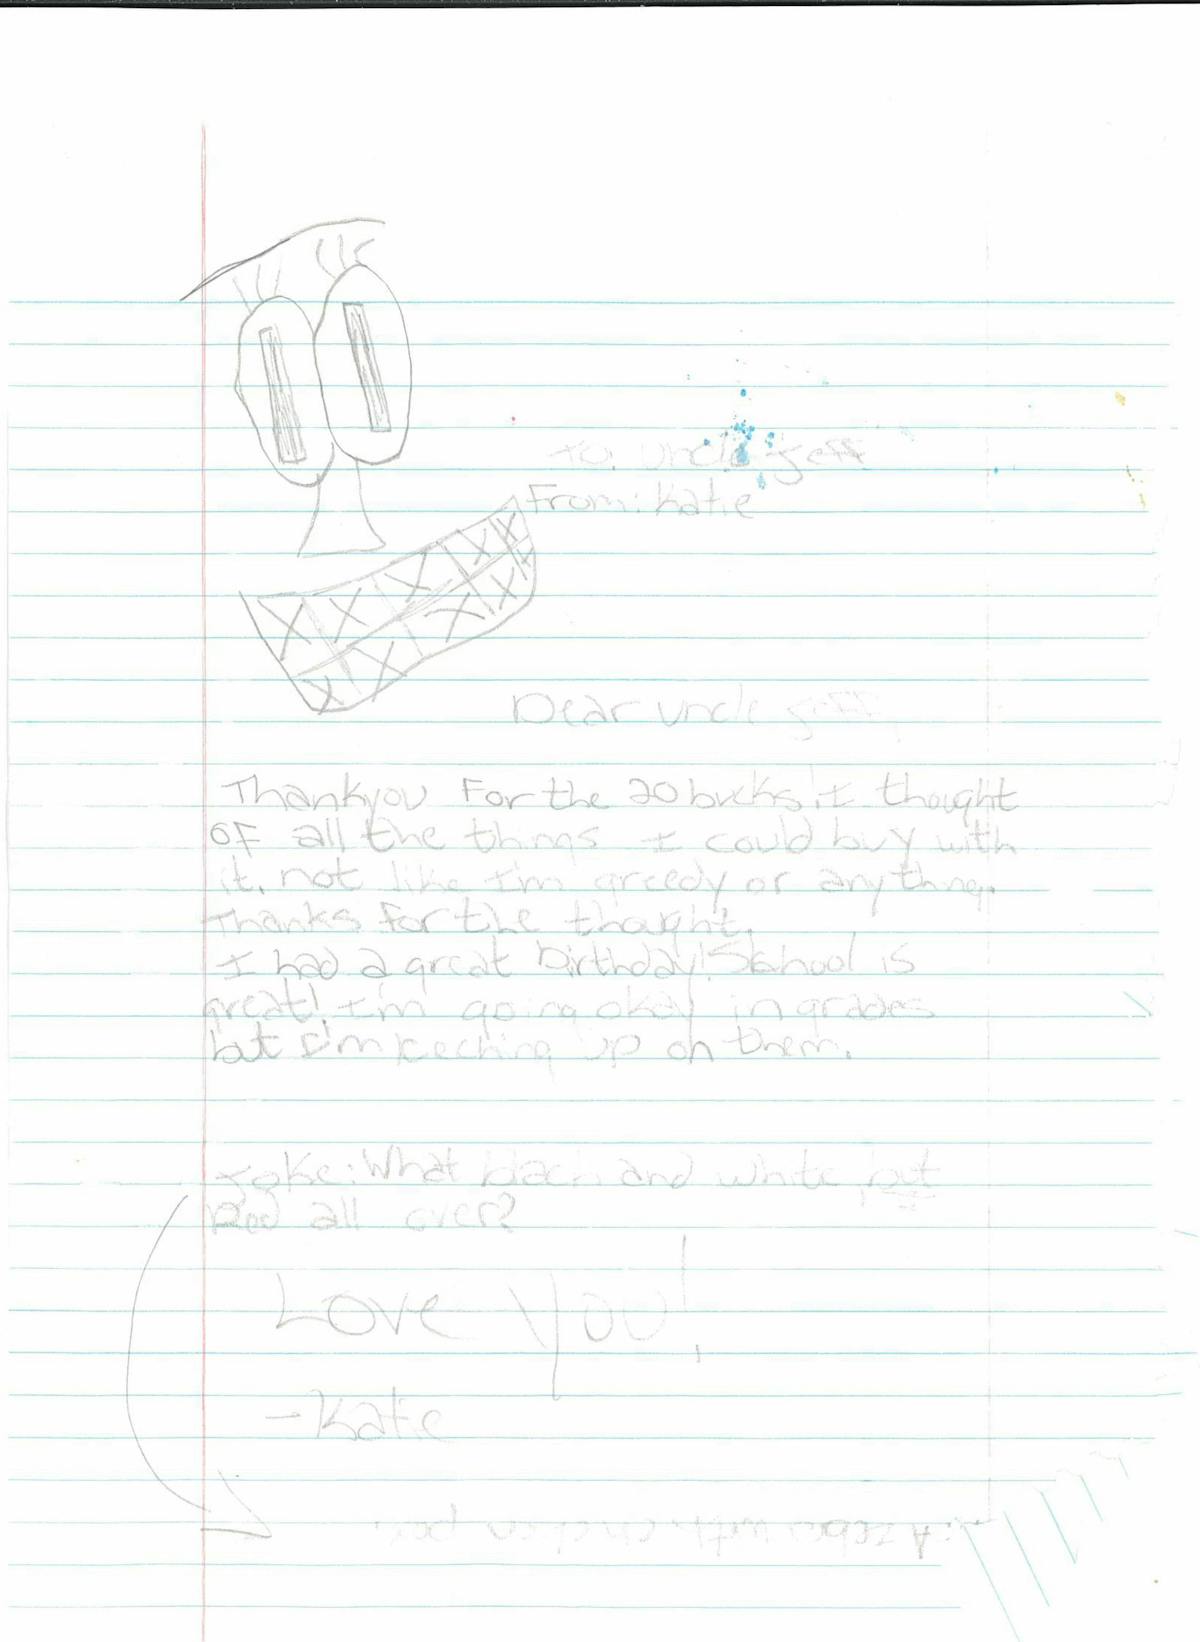 To: Uncle Jeff
From: Katie
Dear Uncle Jeff,
Thankyou For the 20 bucks! I thought
OF all the things I could buy with
it, not like I'm greedy or anything.
Thanks for the thought.
I had a great birthday! School is
great! I'm going okay in grades
but I'm keeching up on them.
Joke: What black and white but
Red all over?
Love You!
- Katie
: A zebra with chicken pox.